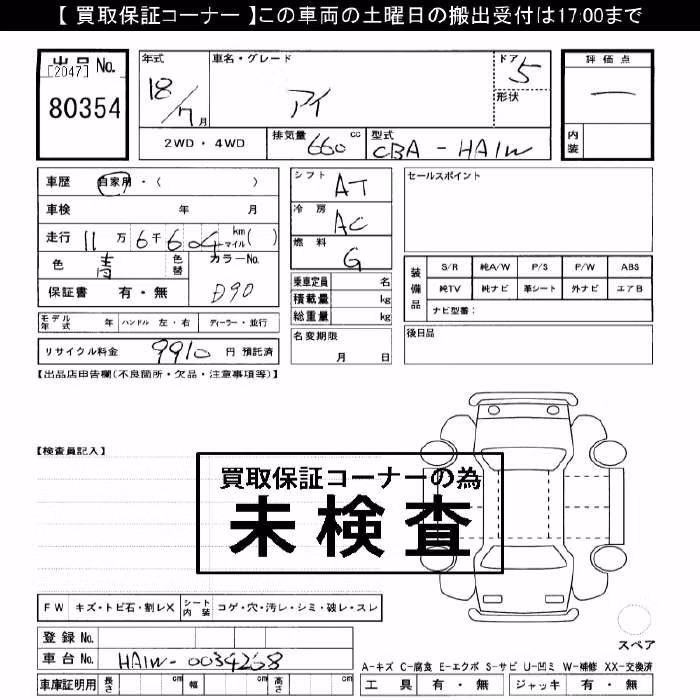 【 買取保証コーナー 】この車両の土曜日の搬出受付は17:00まで
出品 No.
[2047]
80354
年式
18/7月
車名・グレード
アイ
ドア
5
形状
評価点
—
内装
2WD・4WD
排気量 660 cc
型式 CBA-HA1W
車歴 自家用・( )
車検 年 月
走行 11万6千604 km マイル ( )
色 青 色替 カラーNo.
保証書 有・無 D90
モデル年式 年 ハンドル 左・右 ディーラー・並行
リサイクル料金 9910 円 預託済
シフト AT
冷房 AC
燃料 G
乗車定員 名
積載量 kg
総重量 kg
名変期限
月 日
セールスポイント
装備品
S/R 純A/W P/S P/W ABS
純TV 純ナビ 革シート 外ナビ エアB
ナビ型番:
後日品
【出品店申告欄(不良箇所・欠品・注意事項等)】
【検査員記入】
買取保証コーナーの為
未検査
FW キズ・トビ石・割レX シート内装 コゲ・穴・汚レ・シミ・破レ・スレ
登録 No.
車台 No. HA1W-0034268
車庫証明用 長さ cm 幅 cm 高さ cm
スペア
A-キズ C-腐食 E-エクボ S-サビ U-凹ミ W-補修 XX-交換済
工具 有・無 ジャッキ 有・無